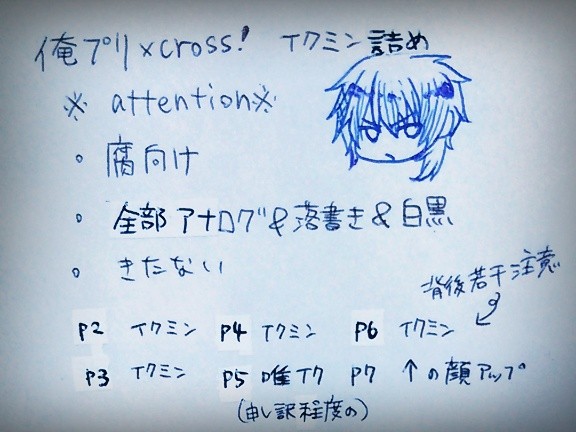 俺プリ×cross! イクミン詰め
※ attention※
・腐向け
・全部アナログ&落書き&白黒
・きたない
背後若干注意
P2 イクミン P4 イクミン P6 イクミン
P3 イクミン P5 唯イク P7 ↑の顔アップ
(申し訳程度の)